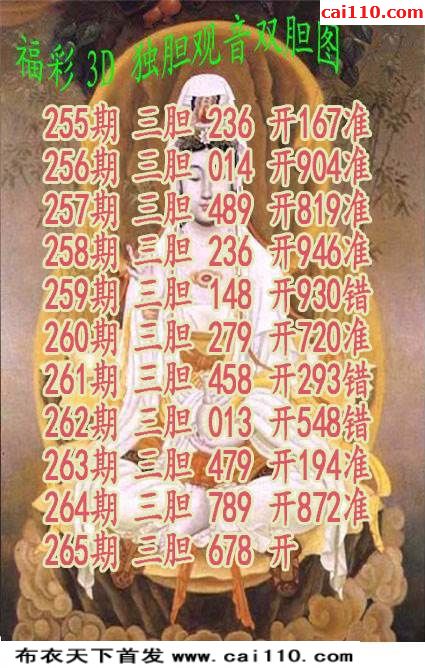 cai110.com
福彩 3D 独胆观音双胆图
255期 三胆 236 开167准
256期 三胆 014 开904准
257期 三胆 489 开819准
258期 三胆 236 开946准
259期 三胆 148 开930错
260期 三胆 279 开720准
261期 三胆 458 开293错
262期 三胆 013 开548错
263期 三胆 479 开194准
264期 三胆 789 开872准
265期 三胆 678 开
布衣天下首发 www.cai110.com